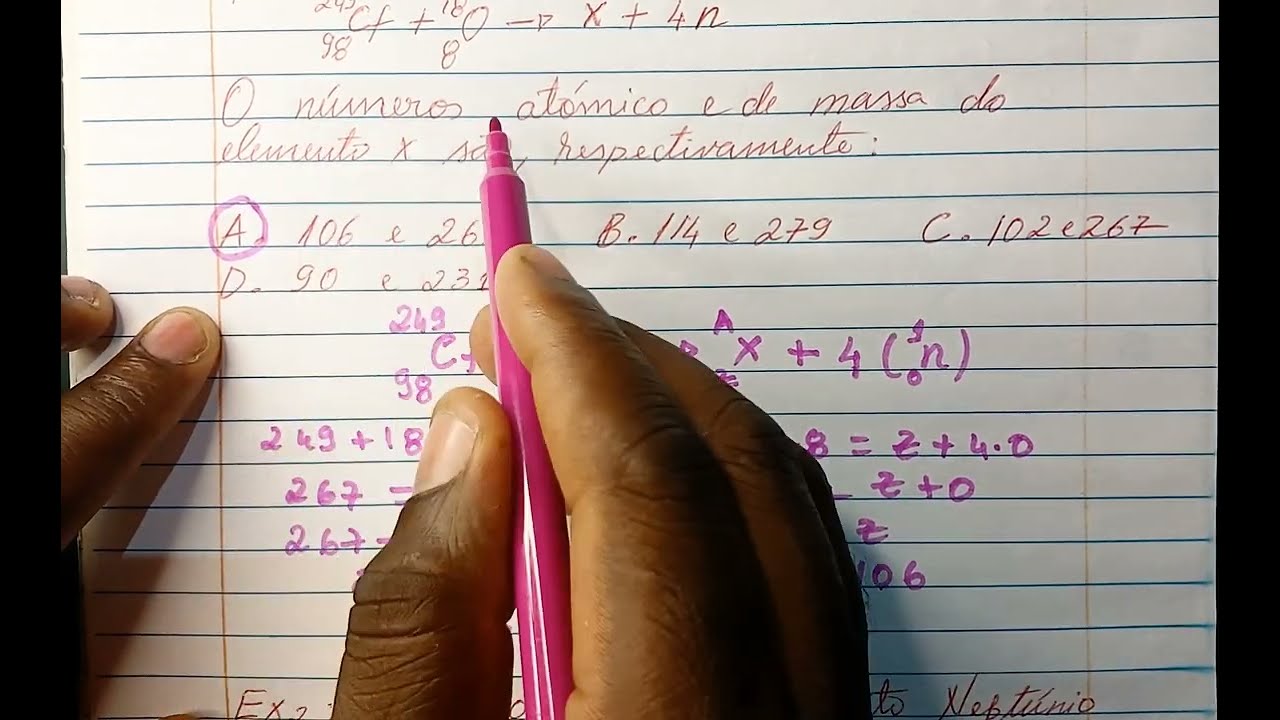 249 98 Cf + 18 8 O → x + 4n
O números atómico e de massa do
elemento x são, respectivamente:
A. 106 e 26 B. 114 e 279 C. 102 e 267
D. 90 e 231
249 98 Cf A Z X + 4 (1 0 n)
249 + 18 8 = Z + 4.0
267 = Z + 0
267 - Z
106
Ex2: Neptúnio